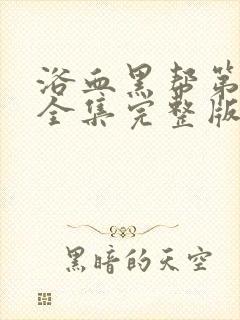 浴血黑帮第
全集完整版
黑暗的天空